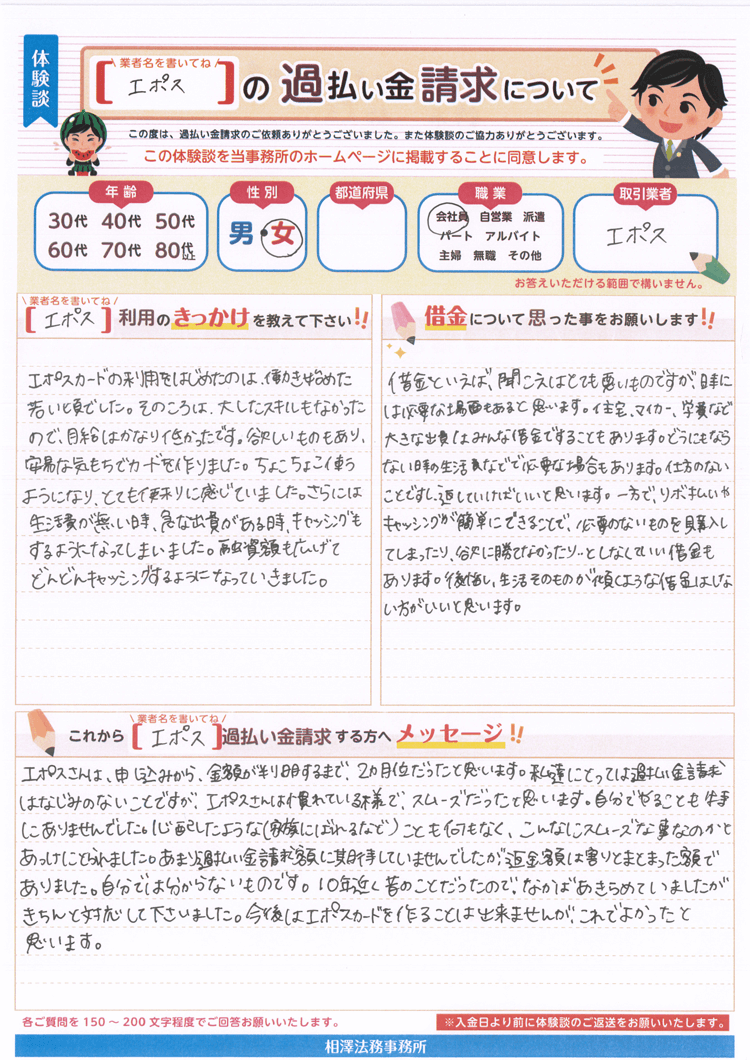 体験談
\ 業者名を書いてね /
[エポス]の過払い金請求について
この度は、過払い金請求のご依頼ありがとうございました。また体験談のご協力ありがとうございます。
この体験談を当事務所のホームページに掲載することに同意します。
年齢
30代 40代 50代
60代 70代 80代以上
性別
男・女
都道府県
職業
会社員 自営業 派遣
パート アルバイト
主婦 無職 その他
取引業者
エポス
お答えいただける範囲で構いません。
\ 業者名を書いてね /
[エポス]利用のきっかけを教えて下さい!!
エポスカードの利用をはじめたのは、働きはじめた
若い頃でした。そのころは、大したスキルもなかった
ので、月給はかなり低かったです。欲しいものもあり、
安易な気もちでカードを作りました。ちょこちょこ使う
ようになり、とても便利に感じていました。さらには
生活費が無い時、急な出費がある時、キャッシングも
するようになってしまいました。融資額も広げて
どんどんキャッシングするようになっていきました。
借金について思った事をお願いします!!
借金といえば、聞こえはとても悪いものですが、時に
は必要な場面もあると思います。住宅、マイカー、学費など
大きな出費はみんな借金ですることもあります。どうにもなら
ない時の生活費などで必要な場合もあります。仕方のない
ことですし返していけばいいと思います。一方で、リボ払いや
キャッシングが簡単にできることで、必要のないものを購入し
てしまったり、欲に勝てなかったり…としなくていい借金も
あります。後悔し、生活そのものが傾くような借金はしな
い方がいいと思います。
\ 業者名を書いてね /
これから[エポス]過払い金請求する方へメッセージ!!
エポスさんは、申し込みから、金額が判明するまで、2カ月位だったと思います。私達にとっては過払い金請求
はなじみのないことですが、エポスさんは慣れている様で、スムーズだったと思います。自分でやることも特
にありませんでした。心配したような(家族にばれるなど)ことも何もなく、こんなにスムーズな事なのかと
あっけにとられました。あまり過払い金請求額に期待していませんでしたが、返金額は割とまとまった額で
ありました。自分では分からないものです。10年近く昔のことだったので、なかばあきらめていましたが
きちんと対応して下さいました。今後はエポスカードを作ることは出来ませんが、これでよかったと
思います。
各ご質問を150～200文字程度でご回答お願いいたします。
※入金日より前に体験談のご返送をお願いいたします。
相澤法務事務所